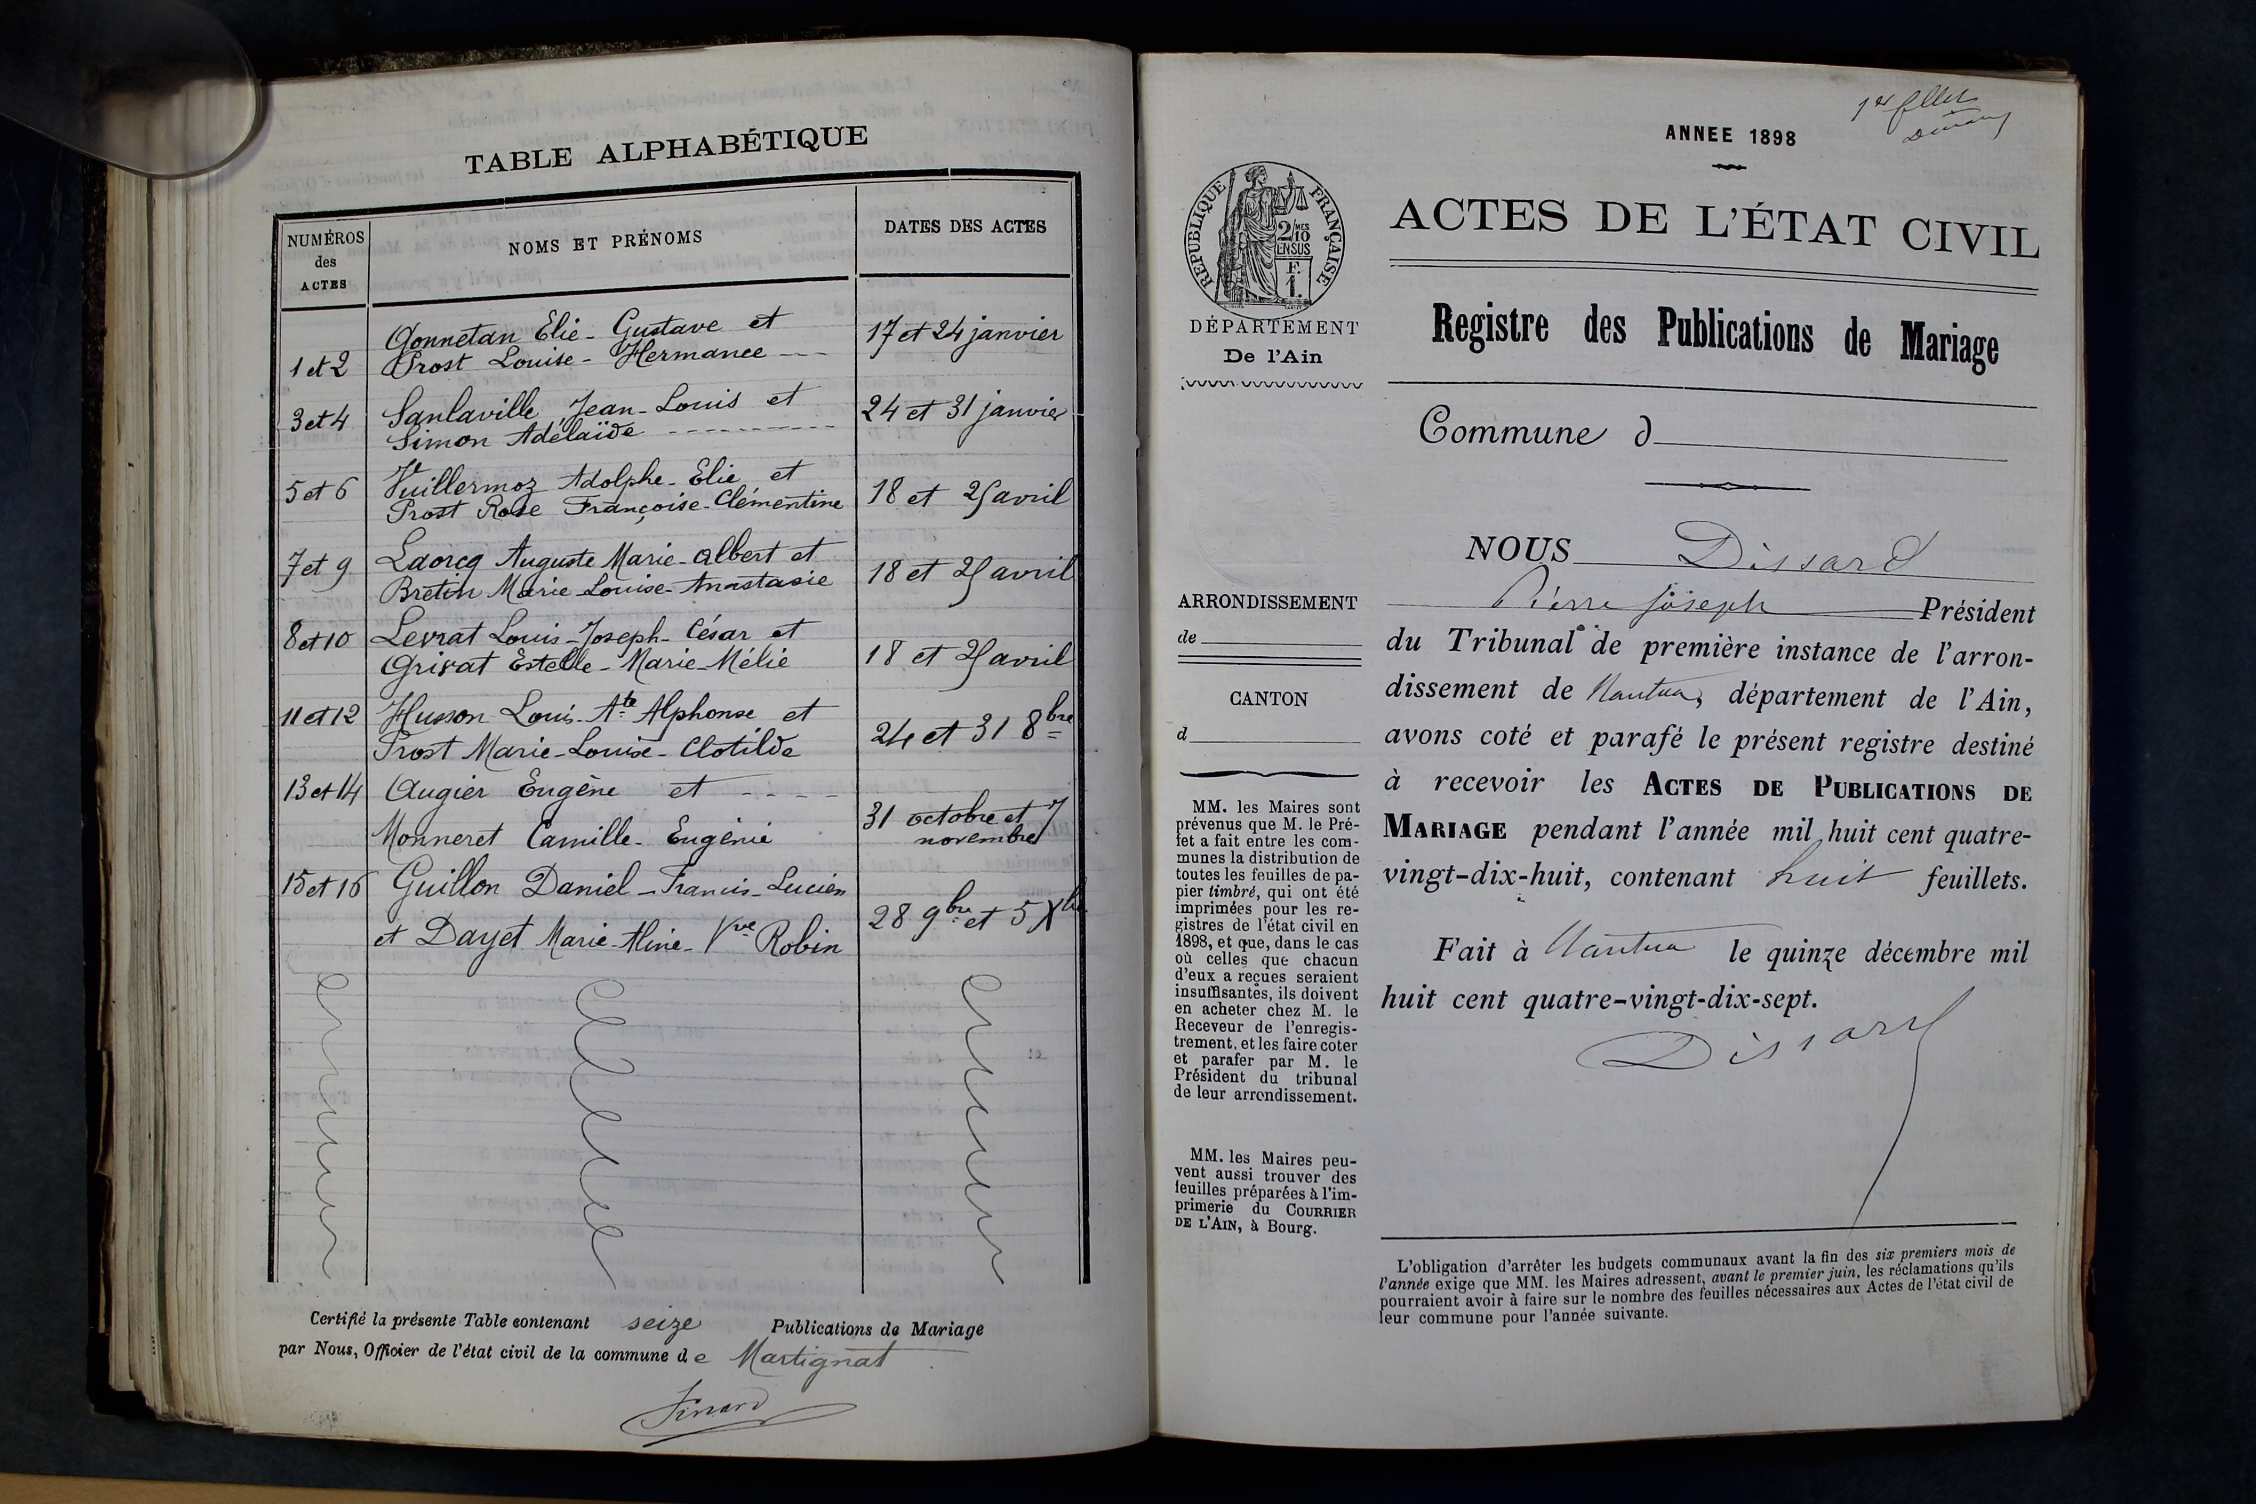 TABLE ALPHABÉTIQUE
NUMÉROS
des
ACTES
NOMS ET PRÉNOMS
DATES DES ACTES
1 et 2
Gonnetan Elie - Gustave et
Prost Louise - Hermance
17 et 24 janvier
3 et 4
Sanlaville Jean - Louis et
Simon Adélaïde
24 et 31 janvier
5 et 6
Vuillermoz Adolphe - Elie et
Prost Rose Françoise - Clémentine
18 et 25 avril
7 et 9
Laorcq Auguste Marie - Albert et
Bretin Marie Louise - Anastasie
18 et 25 avril
8 et 10
Levrat Louis - Joseph - César et
Grivat Estelle - Marie - Mélie
18 et 25 avril
11 et 12
Husson Louis - Ate Alphonse et
Prost Marie - Louise - Clotilde
24 et 31 8bre
13 et 14
Augier Eugène et
Monneret Camille - Eugénie
31 octobre et 7
novembre
15 et 16
Guillon Daniel - Francis - Lucien
et Dayet Marie - Aline - Vve Robin
28 9bre et 5 Xbre
Certifié la présente Table contenant seize Publications de Mariage
par Nous, Officier de l'état civil de la commune de Martignat
ANNEE 1898
1er fllet
RÉPUBLIQUE FRANÇAISE
2/10
MES
EN SUS
F.
1.
DÉPARTEMENT
De l'Ain
ACTES DE L'ÉTAT CIVIL
Registre des Publications de Mariage
Commune d
NOUS Dissard
Pierre Joseph Président
du Tribunal de première instance de l'arron-
dissement de Nantua, département de l'Ain,
avons coté et parafé le présent registre destiné
à recevoir les ACTES DE PUBLICATIONS DE
MARIAGE pendant l'année mil huit cent quatre-
vingt-dix-huit, contenant huit feuillets.
Fait à Nantua le quinze décembre mil
huit cent quatre-vingt-dix-sept.
Dissard
ARRONDISSEMENT
de
CANTON
d
MM. les Maires sont
prévenus que M. le Pré-
fet a fait entre les com-
munes la distribution de
toutes les feuilles de pa-
pier timbré, qui ont été
imprimées pour les re-
gistres de l'état civil en
1898, et que, dans le cas
où celles que chacun
d'eux a reçues seraient
insuffisantes, ils doivent
en acheter chez M. le
Receveur de l'enregis-
trement, et les faire coter
et parafer par M. le
Président du tribunal
de leur arrondissement.
MM. les Maires peu-
vent aussi trouver des
feuilles préparées à l'im-
primerie du COURRIER
DE L'AIN, à Bourg.
L'obligation d'arrêter les budgets communaux avant la fin des six premiers mois de
l'année exige que MM. les Maires adressent, avant le premier juin, les réclamations qu'ils
pourraient avoir à faire sur le nombre des feuilles nécessaires aux Actes de l'état civil de
leur commune pour l'année suivante.